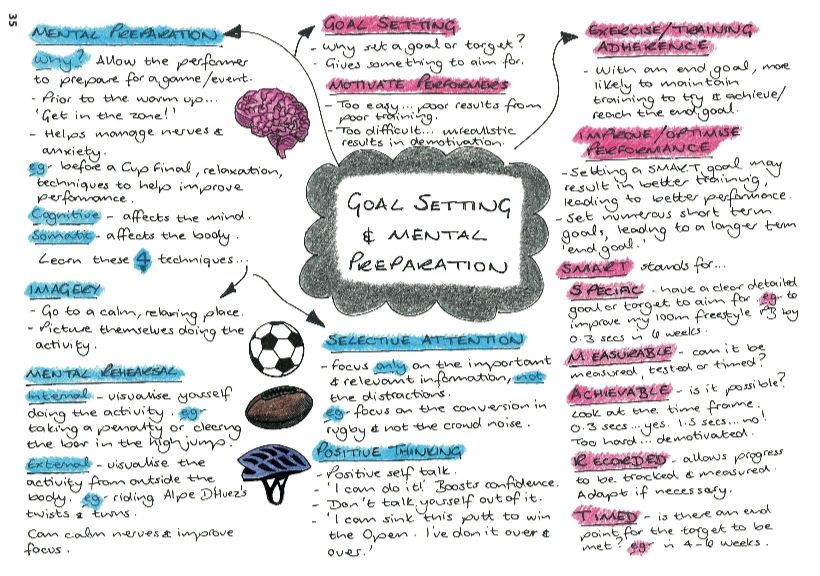 35
MENTAL PREPARATION
Why? Allow the performer
to prepare for a game/event.
- Prior to the warm up...
'Get in the zone!'
- Helps manage nerves &
anxiety.
eg - before a Cup Final, relaxation,
techniques to help improve
performance.
Cognitive - affects the mind.
Somatic - affects the body.
Learn these 4 techniques...
IMAGERY
- Go to a calm, relaxing place.
- Picture themselves doing the
activity.
MENTAL REHEARSAL
Internal - visualise yourself
doing the activity. eg-
taking a penalty or clearing
the bar in the high jump.
External - visualise the
activity from outside the
body. eg- riding Alpe D'Huez's
twists & turns.
Can calm nerves & improve
focus.
GOAL SETTING
- Why set a goal or target?
- Gives something to aim for.
MOTIVATE PERFORMERS
- Too easy... poor results from
poor training.
- Too difficult... unrealistic
results in demotivation.
GOAL SETTING
& MENTAL
PREPARATION
SELECTIVE ATTENTION
- focus only on the important
& relevant information, not
the distractions.
eg- focus on the conversion in
rugby & not the crowd noise.
POSITIVE THINKING
- Positive self talk.
- 'I can do it!' Boosts confidence.
- Don't talk yourself out of it.
- 'I can sink this putt to win
the Open. I've don it over &
over.'
EXERCISE/TRAINING
ADHERENCE
- With an end goal, more
likely to maintain
training to try & achieve/
reach the end goal.
IMPROVE/OPTIMISE
PERFORMANCE
- Setting a SMART goal may
result in better training,
leading to better performance.
- Set numerous short term
goals, leading to a longer term
'end goal.'
SMART stands for...
SPECIFIC - have a clear detailed
goal or target to aim for eg- to
improve my 100m freestyle PB by
0.3 secs in 6 weeks.
MEASURABLE - can it be
measured, tested or timed?
ACHIEVABLE - is it possible?
Look at the time frame.
0.3 secs...yes. 1.5 secs...no!
Too hard... demotivated.
RECORDED - allows progress
to be tracked & measured.
Adapt if necessary.
TIMED - is there an end
point for the target to be
met? eg- in 4-6 weeks.